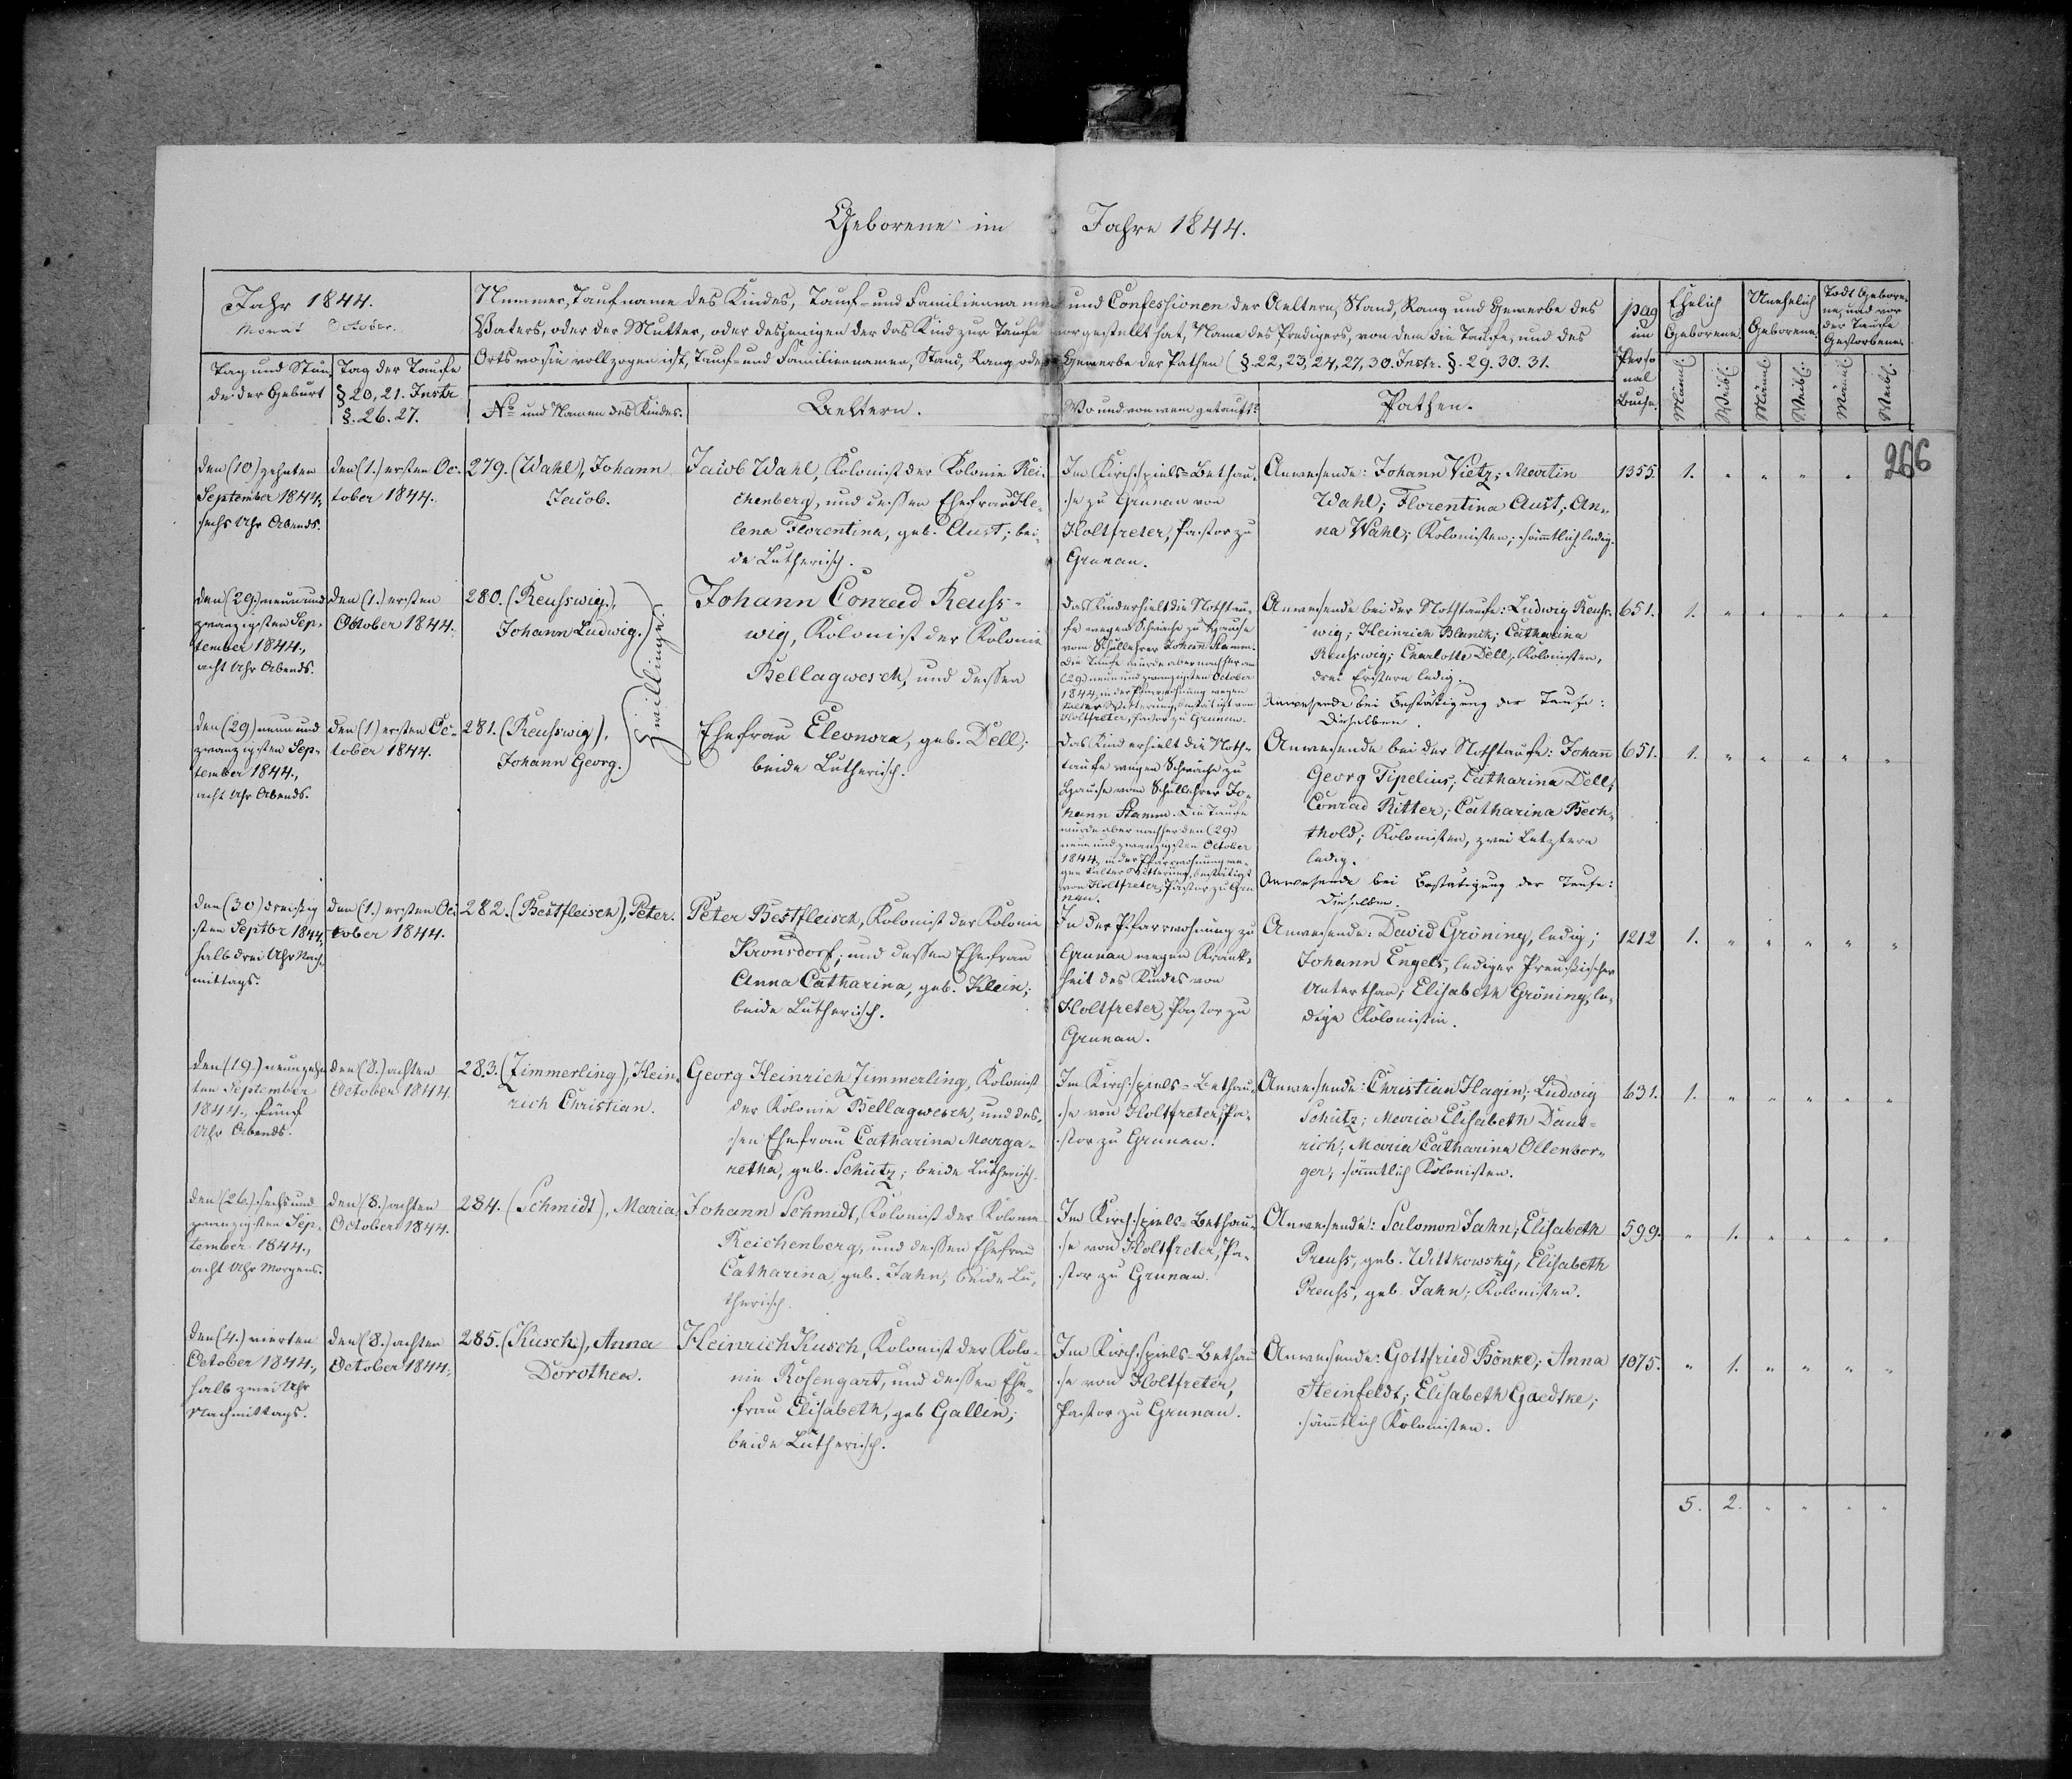 Geborene im Jahre 1844.
Jahr 1844.
Monat October.
Tag und Stun¬
de der Geburt
Tag der Taufe
§ 20, 21. Instr
§. 26. 27.
Nummer, Taufname des Kindes, Tauf- und Familienname und Confessionen der Aeltern, Stand, Rang und Gewerbe des
Vaters, oder der Mutter, oder desjenigen der das Kind zur Taufe vorgestellt hat, Name des Predigers, von dem die Taufe, und des
Orts wo sie vollzogen ist, Tauf- und Familiennamen, Stand, Rang oder Gewerbe der Pathen (§. 22, 23, 24, 27, 30. Instr. §. 29. 30. 31.
No und Namen des Kindes.
Aeltern.
Wo und von wem getauft?
Pathen.
pag
im
Perso
nal
Buche.
Ehelich
Geborene.
Unehelich
Geborene.
Todt Gebore¬
ne, und vor
der Taufe
Gestorbene.
Männl.
Weibl.
Männl.
Weibl.
Männl.
Weibl.
266
den (10) zehnten
September 1844,
sechs Uhr Abends.
den (1.) ersten Oc¬
tober 1844.
279. (Wahl), Johann
Jacob.
Jacob Wahl, Kolonist der Kolonie Rei¬
chenberg, und dessen Ehefrau He¬
lena Florentina, geb. Aust; bei¬
de Lutherisch.
Im Kirchspiels-Bethau¬
se zu Grunau von
Holtfreter, Pastor zu
Grunau.
Anwesende: Johann Vietz; Martin
Wahl; Florentina Aust; An¬
na Wahl; Kolonisten; sämtlich ledig.
1355. 1. " " " "
den (29.) neun und
zwanzigsten Sep¬
tember 1844.,
acht Uhr Abends.
den (1.) ersten
October 1844.
280. (Reusswig.),
Johann Ludwig.
Zwillinge.
Johann Conrad Reuss¬
wig, Kolonist der Kolonie
Bellagwesch, und dessen
Das Kind erhielt die Nothtau¬
fe wegen Schwäche zu Hause
vom Schullehrer Johann Stamm.
Die Taufe wurde aber nachher am
(29.) neun und zwanzigsten October
1844, in der Pfarrwohnung wegen
kalter Witterung, bestätigt von
Holtfreter, Pastor zu Grunau.
Anwesende bei der Nothtaufe: Ludwig Reuss¬
wig; Heinrich Blumk; Catharina
Reusswig; Charlotte Dell; Kolonisten,
drei Erstern ledig.
Anwesende bei Bestätigung der Taufe:
Dieselben.
651. 1. " " " " "
den (29) neun und
zwanzigsten Sep¬
tember 1844.,
acht Uhr Abends.
den (1) ersten Oc¬
tober 1844.
281. (Reusswig),
Johann Georg.
Ehefrau Eleonora, geb. Dell;
beide Lutherisch.
Das Kind erhielt die Noth¬
taufe wegen Schwäche zu
Hause vom Schullehrer Jo¬
hann Stamm. Die Taufe
wurde aber nachher den (29.)
neun und zwanzigsten October
1844, in der Pfarrwohnung we¬
gen kalter Witterung, bestätigt
von Holtfreter, Pastor zu Gru
nau.
Anwesende bei der Nothtaufe: Johann
Georg Tipelius; Catharina Dell;
Conrad Ritter; Catharina Bech¬
thold; Kolonisten, zwei Letztern
ledig.
Anwesende bei Bestätigung der Taufe:
Dieselben.
651. 1. " " " " "
den (30) dreissig
sten Septbr 1844,
halb drei Uhr Nach¬
mittags.
den (1.) ersten Oc¬
tober 1844.
282. (Bestfleisch), Peter.
Peter Bestfleisch, Kolonist der Kolonie
Kronsdorf; und dessen Ehefrau
Anna Catharina, geb. Klein;
beide Lutherisch.
In der Pfarrwohnung zu
Grunau wegen Krank¬
heit des Kindes von
Holtfreter, Pastor zu
Grunau.
Anwesende: David Gröning, ledig;
Johann Engels, lediger Preussischer
Unterthan; Elisabeth Gröning, le¬
dige Kolonistin.
1212 1. " " " " "
den (19.) neunzehn
ten September
1844., fünf
Uhr Abends.
den (8.) achten
October 1844.
283. (Zimmerling), Hein¬
rich Christian.
Georg Heinrich Zimmerling, Kolonist
der Kolonie Bellagwesch, und des¬
sen Ehefrau Catharina Marga¬
retha, geb. Schütz; beide Lutherisch.
Im Kirchspiels-Bethau¬
se von Holtfreter, Pa¬
stor zu Grunau.
Anwesende: Christian Hagin; Ludwig
Schütz; Maria Elisabeth Daut¬
rich; Maria Catharina Ollenbor¬
ger; sämtlich Kolonisten.
631. 1. " " " " "
den (26.) sechs und
zwanzigsten Sep¬
tember 1844.,
acht Uhr Morgens.
den (8.) achten
October 1844.
284. (Schmidt), Maria.
Johann Schmidt, Kolonist der Kolonie
Reichenberg, und dessen Ehefrau
Catharina, geb. Jahn; beide Lu¬
therisch.
Im Kirchspiels-Bethau¬
se von Holtfreter, Pa¬
stor zu Grunau.
Anwesende: Salomon Jahn; Elisabeth
Preuss, geb. Wittkowsky; Elisabeth
Preuss, geb. Jahn; Kolonisten.
599. " 1. " " " "
den (4.) vierten
October 1844.,
halb zwei Uhr
Nachmittags.
den (8.) achten
October 1844.
285. (Kusch), Anna
Dorothea.
Heinrich Kusch, Kolonist der Kolo¬
nie Rosengart, und dessen Ehe¬
frau Elisabeth, geb Gallin;
beide Lutherisch.
Im Kirchspiels-Bethau
se von Holtfreter,
Pastor zu Grunau.
Anwesende: Gottfried Bönke; Anna
Steinfeldt; Elisabeth Gaedtke;
sämtlich Kolonisten.
1075. " 1. " " " "
5. 2. " " " "